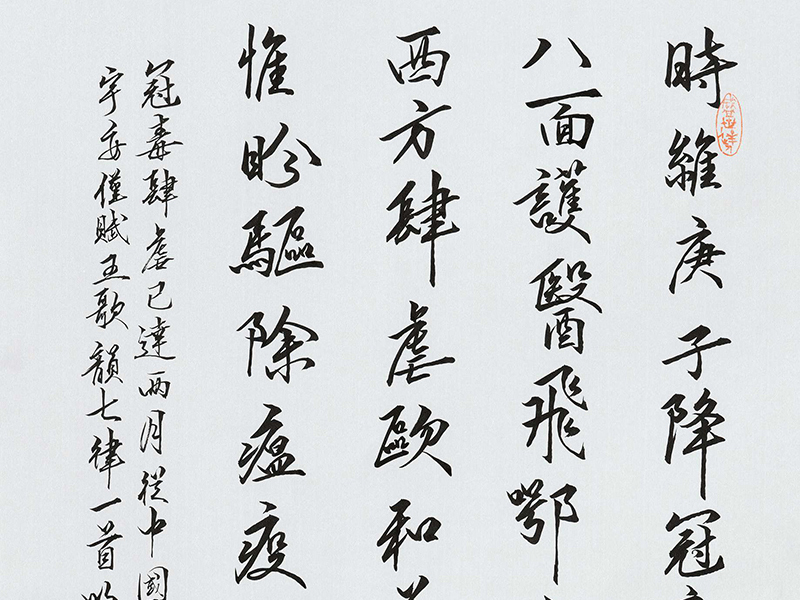 時維庚子降冠
八面護醫飛鄂
西方肆虐歐和
惟盼驅除瘟疫
冠毒肆虐已達兩月從中國
字安僅賦五歌韻七律一首